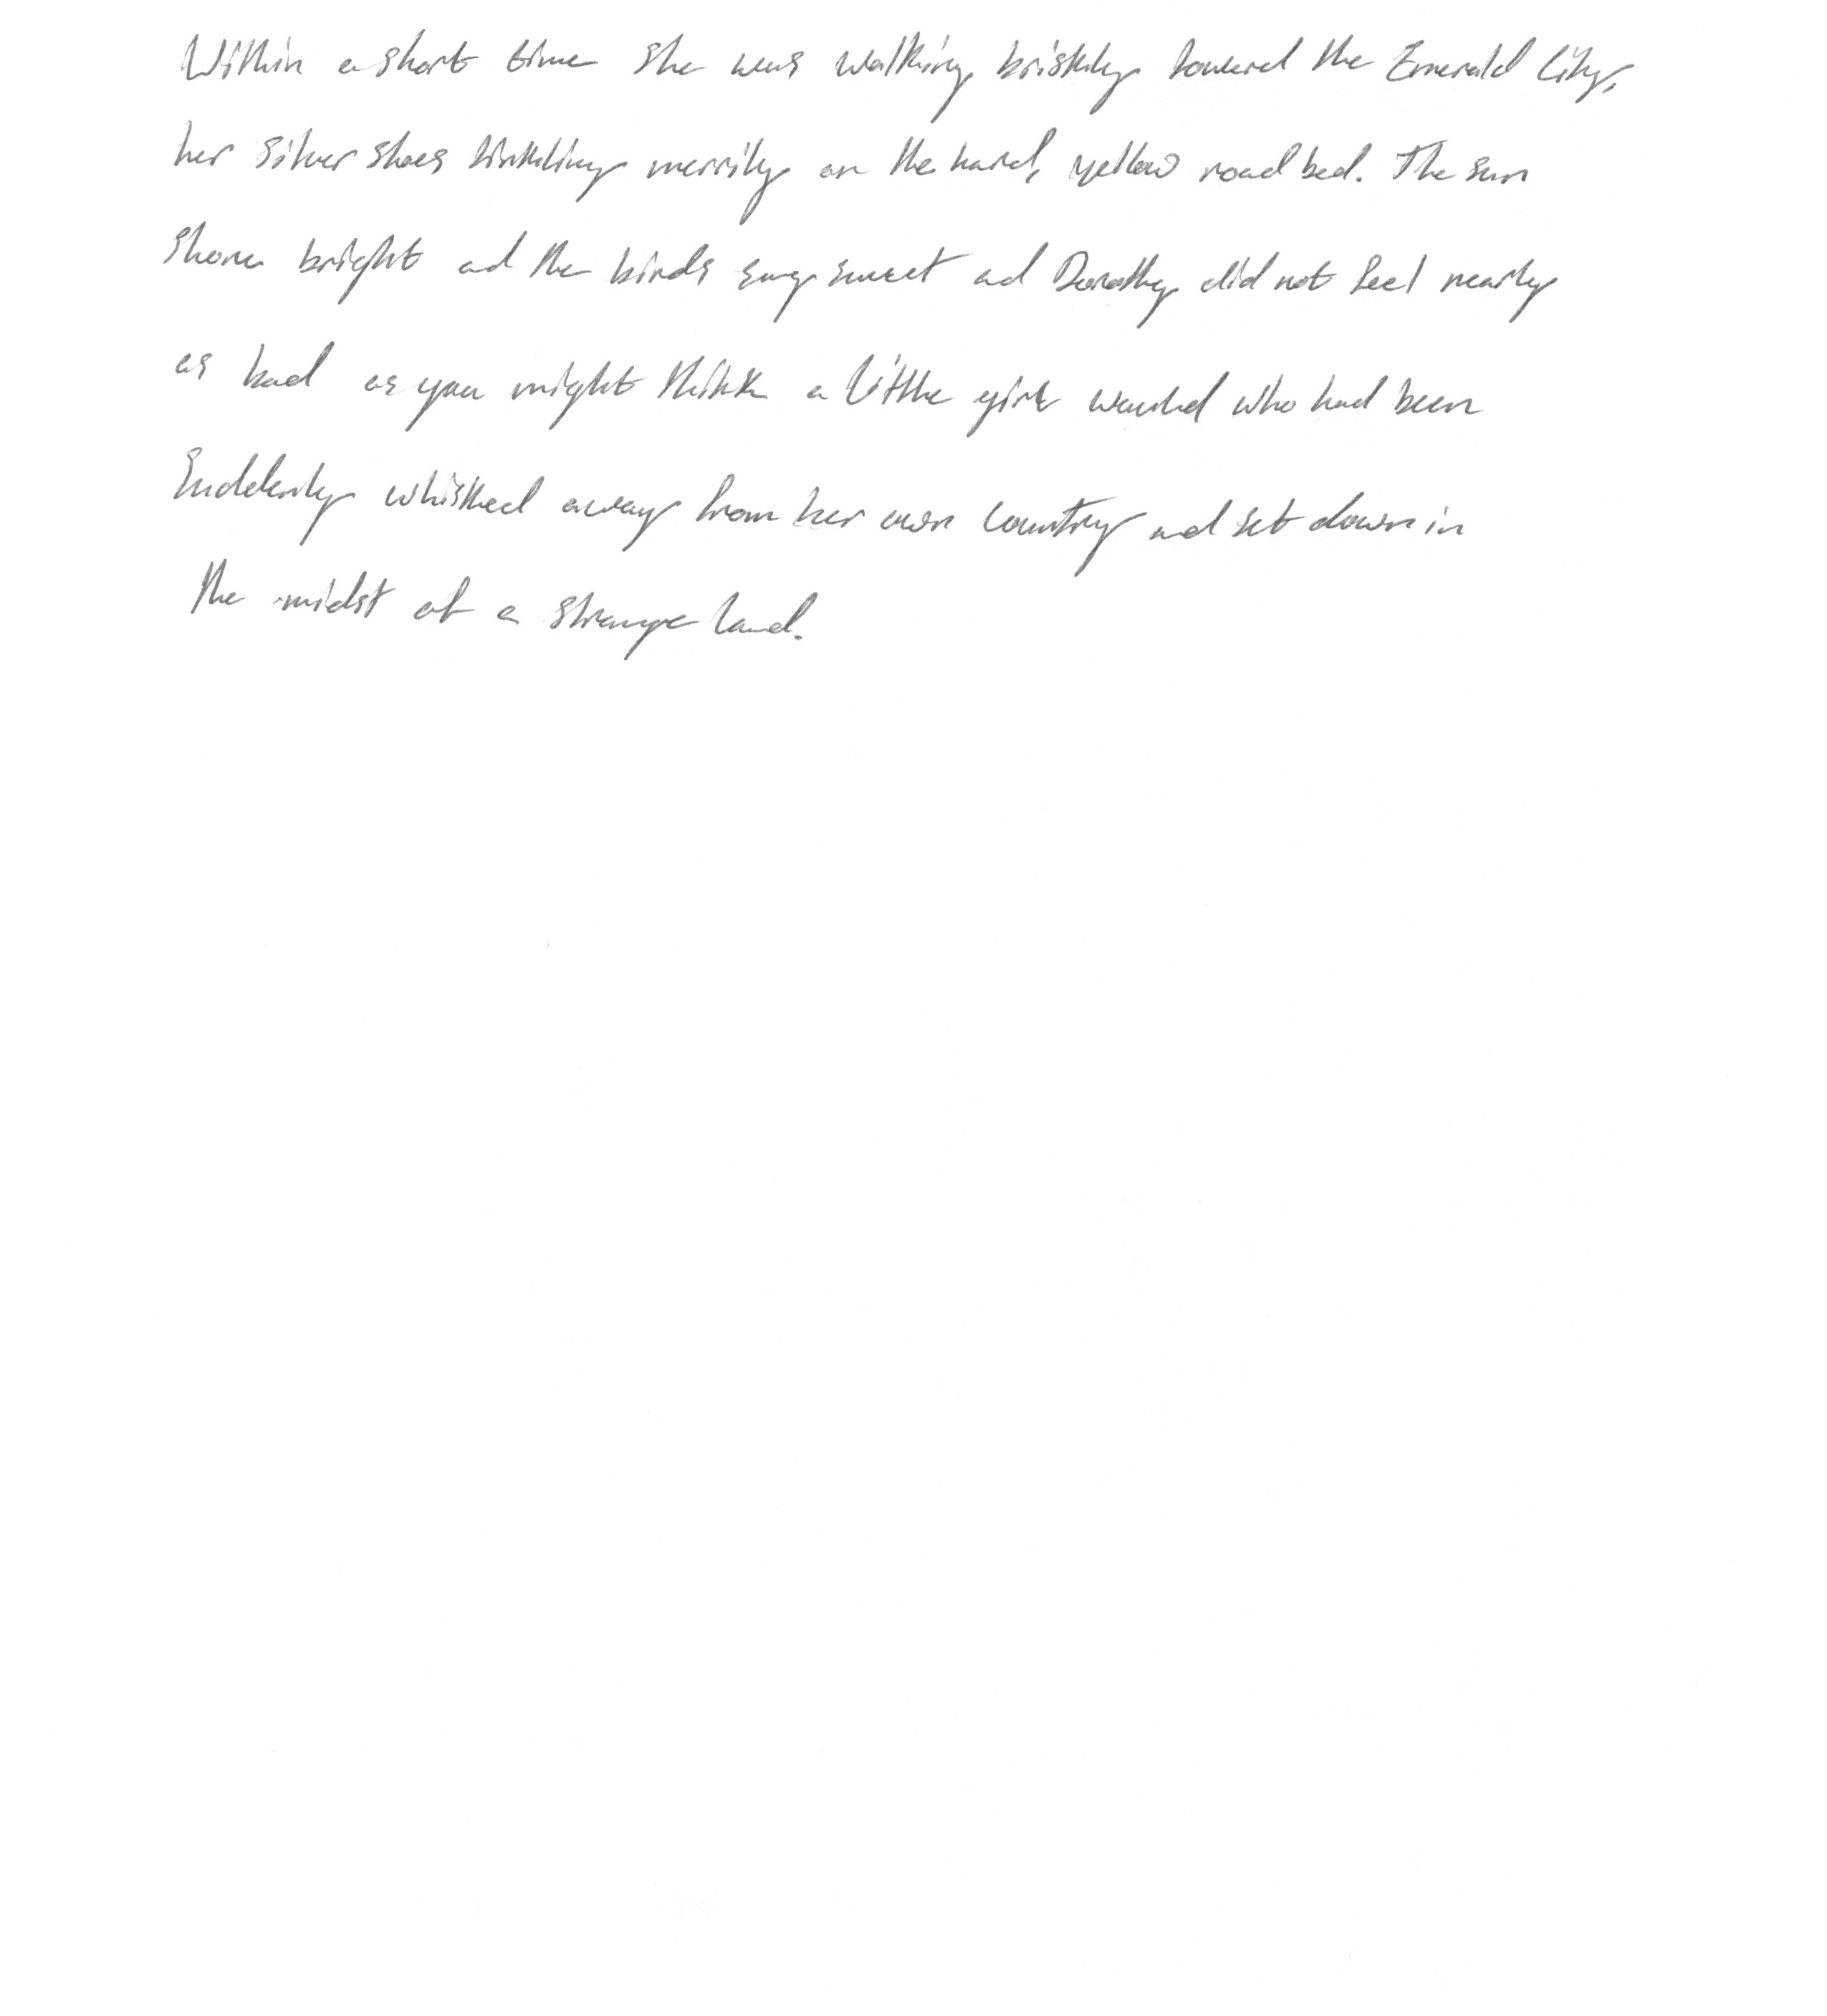 Within a short time she was walking briskly toward the Emerald City,
her silver shoes tinkling merrily on the hard, yellow road bed. The sun
shone bright and the birds sung sweet and Dorothy did not feel nearly
as bad as you might think a little girl would who had been
suddenly whisked away from her own country and set down in
the midst of a strange land.